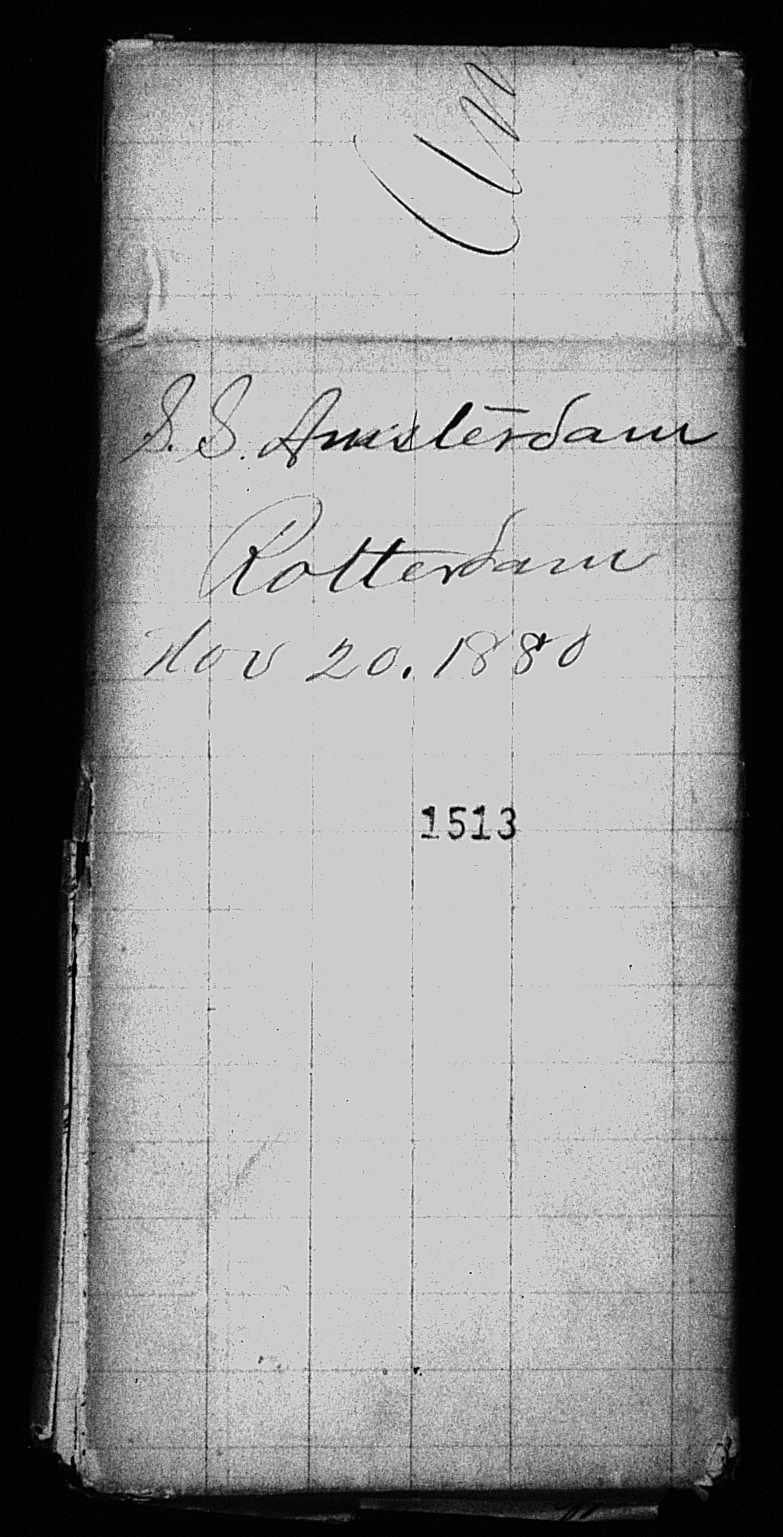 S.S. Amsterdam
Rotterdam
Nov 20. 1880
1513